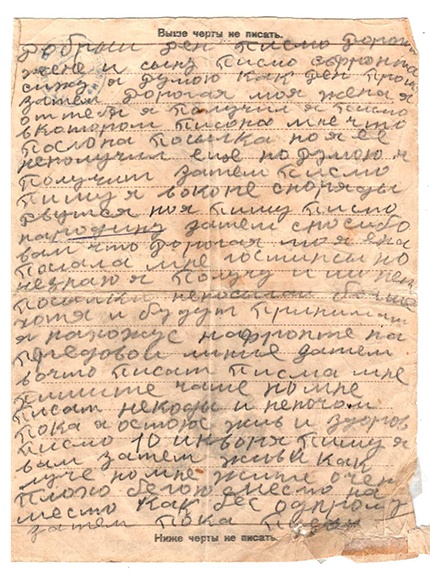 Выше черты не писать.
добрый ден писмо дорогой
жене и сыну писмо сфронта
сижу и думою как ден прош
затем дорогая моя жена я
оттебя получил я писмо
вкотором писона мне что
послона посылка но я ее
неполучил еше но думою и
получит затем писмо
пишу я вокопе споряды
рвутся ноя пишу писмо
народину затем спосибо
вам что дорогая моя жена
послала мне гостинсы но
незнаю я получу и ли нет
посылки непосылай больше
хотя и будут принимат
я нахожус нафронте на
предовой линие затем
вочто писат писма мне
пишите чаше но мне
писат некогды и непочом
пока я остоюс жив и здоров
писмо 10 инворя пишу я
вам затем живи как
луче но мне жит очен
плохо бегою место на
место как бес
затем пока
Ниже черты не писать.